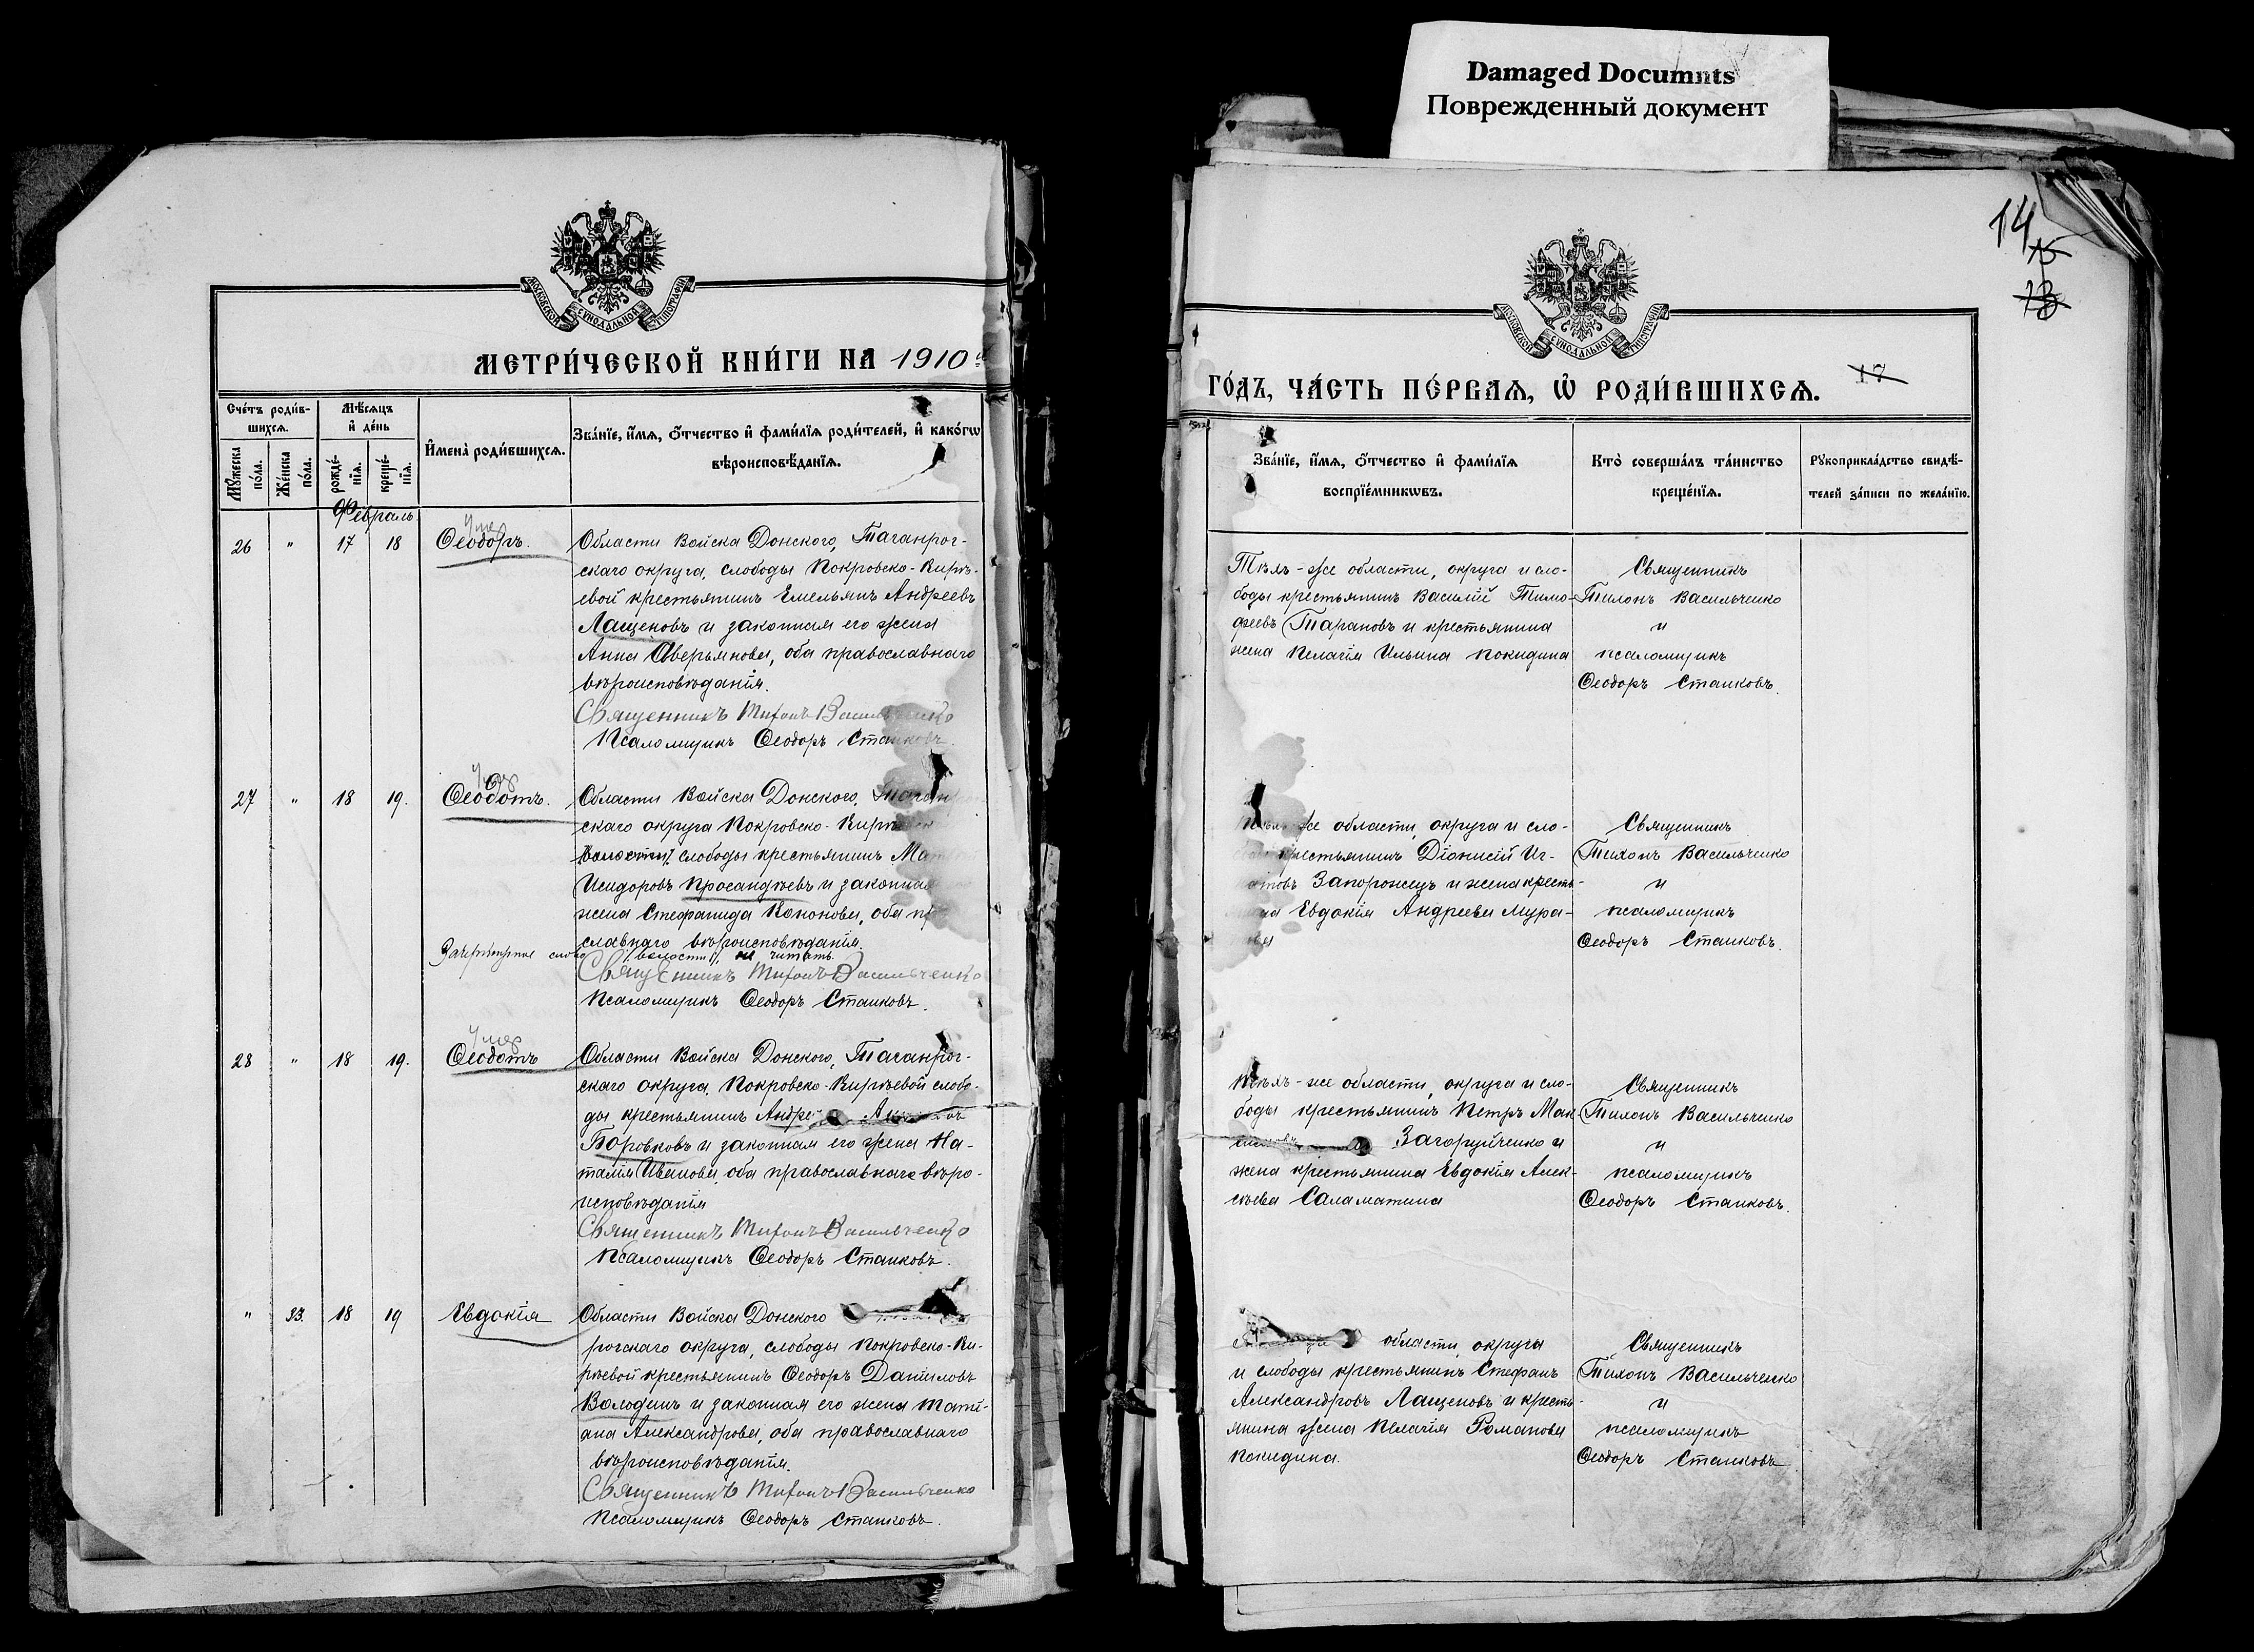 Damaged Documnts
Поврежденный документ
МОСКОВСКОЙ СѴНОДАЛЬНОЙ ТИПОГРАФІИ
МЕТРИ́ЧЕСКОЙ КНИ́ГИ НА 1910
Сче́тъ роди́в-
шихсѧ.
Мѣ́сѧцъ
и҆ де́нь
Мꙋ́жеска
по́ла.
Же́нска
по́ла.
рожде́-
нїѧ.
креще́-
нїѧ.
И҆мена̀ роди́вшихсѧ.
Зва́нїе, и҆́мѧ, ѻ҆́тчество и҆ фами́лїѧ роди́телей, и҆ како́гѡ
вѣроисповѣ́данїѧ.
Февраль
26 " 17 18
Умер
Ѳеодоръ.
Области Войска Донского, Таганрог-
скаго округа, слободы Покровско-Кирѣ-
евой крестьянинъ Емельянъ Андреевъ
Лащеновъ и законная его жена
Анна Аверьянова, оба православнаго
вѣроисповѣданія.
Священникъ Тихонъ Васильченко
Псаломщикъ Ѳеодоръ Станковъ.
27 " 18 19.
Умер
Ѳеодотъ.
Области Войска Донского,
скаго округа Покровско-
волости, слободы крестьянинъ
Исидоровъ Просандѣевъ и законная
жена Стефанида Кононова, оба
славнаго вѣроисповѣданія.
Зачеркнутое слово "волости" не читать.
Священникъ Тихонъ Васильченко
Псаломщикъ Ѳеодоръ Станковъ.
28 " 18 19.
Умер
Ѳеодотъ
Области Войска Донского, Таганрог-
скаго округа, Покровско-Кирѣевой слобо-
ды крестьянинъ Андрей
Боровковъ и законная его жена На-
талія Иванова, оба православнаго вѣро-
исповѣданія
Священникъ Тихонъ Васильченко
Псаломщикъ Ѳеодоръ Станковъ.
" 33. 18 19
Евдокія
Области Войска Донского
рогскаго округа, слободы Покровско-Ки-
рѣевой крестьянинъ Ѳеодоръ Даниловъ
Володинъ и законная его жена Тати-
ана Александрова, оба православнаго
вѣроисповѣданія.
Священникъ Тихонъ Васильченко
Псаломщикъ Ѳеодоръ Станковъ.
14
15
13
МОСКОВСКОЙ СѴНОДАЛЬНОЙ ТИПОГРАФІИ
ГО́ДЪ, ЧА́СТЬ ПЕ́РВАѦ, Ѡ҆ РОДИ́ВШИХСѦ.
17
Зва́нїе, и҆́мѧ, ѻ҆́тчество и҆ фами́лїѧ
воспрїе́мникѡвъ.
Кто̀ соверша́лъ та́инство
креще́нїѧ.
Рꙋкоприкла́дство свидѣ́-
телей за́писи по жела́нїю.
Тѣхъ-же области, округа и сло-
боды крестьянинъ Василій Тимо-
феевъ Тарановъ и крестьянина
жена Пелагія Ильина Покидина
Священникъ
Тихонъ Васильченко
и
псаломщикъ
Ѳеодоръ Станковъ.
же области, округа и сло-
крестьянинъ Діонисій Иг-
Запорожецъ и жена кресть-
Евдокія Андреева Мура-
Священникъ
Тихонъ Васильченко
и
псаломщикъ
Ѳеодоръ Станковъ.
Тѣхъ-же области, округа и сло-
боды крестьянинъ Петръ Мак-
Загоруйченко и
жена крестьянина Евдокія Алек-
сѣева Саламатина
Священникъ
Тихонъ Васильченко
и
псаломщикъ
Ѳеодоръ Станковъ.
области, округа
и слободы крестьянинъ Стефанъ
Александровъ Лащеновъ и кресть-
янина жена Пелагія Романова
Покидина.
Священникъ
Тихонъ Васильченко
и
псаломщикъ
Ѳеодоръ Станковъ.